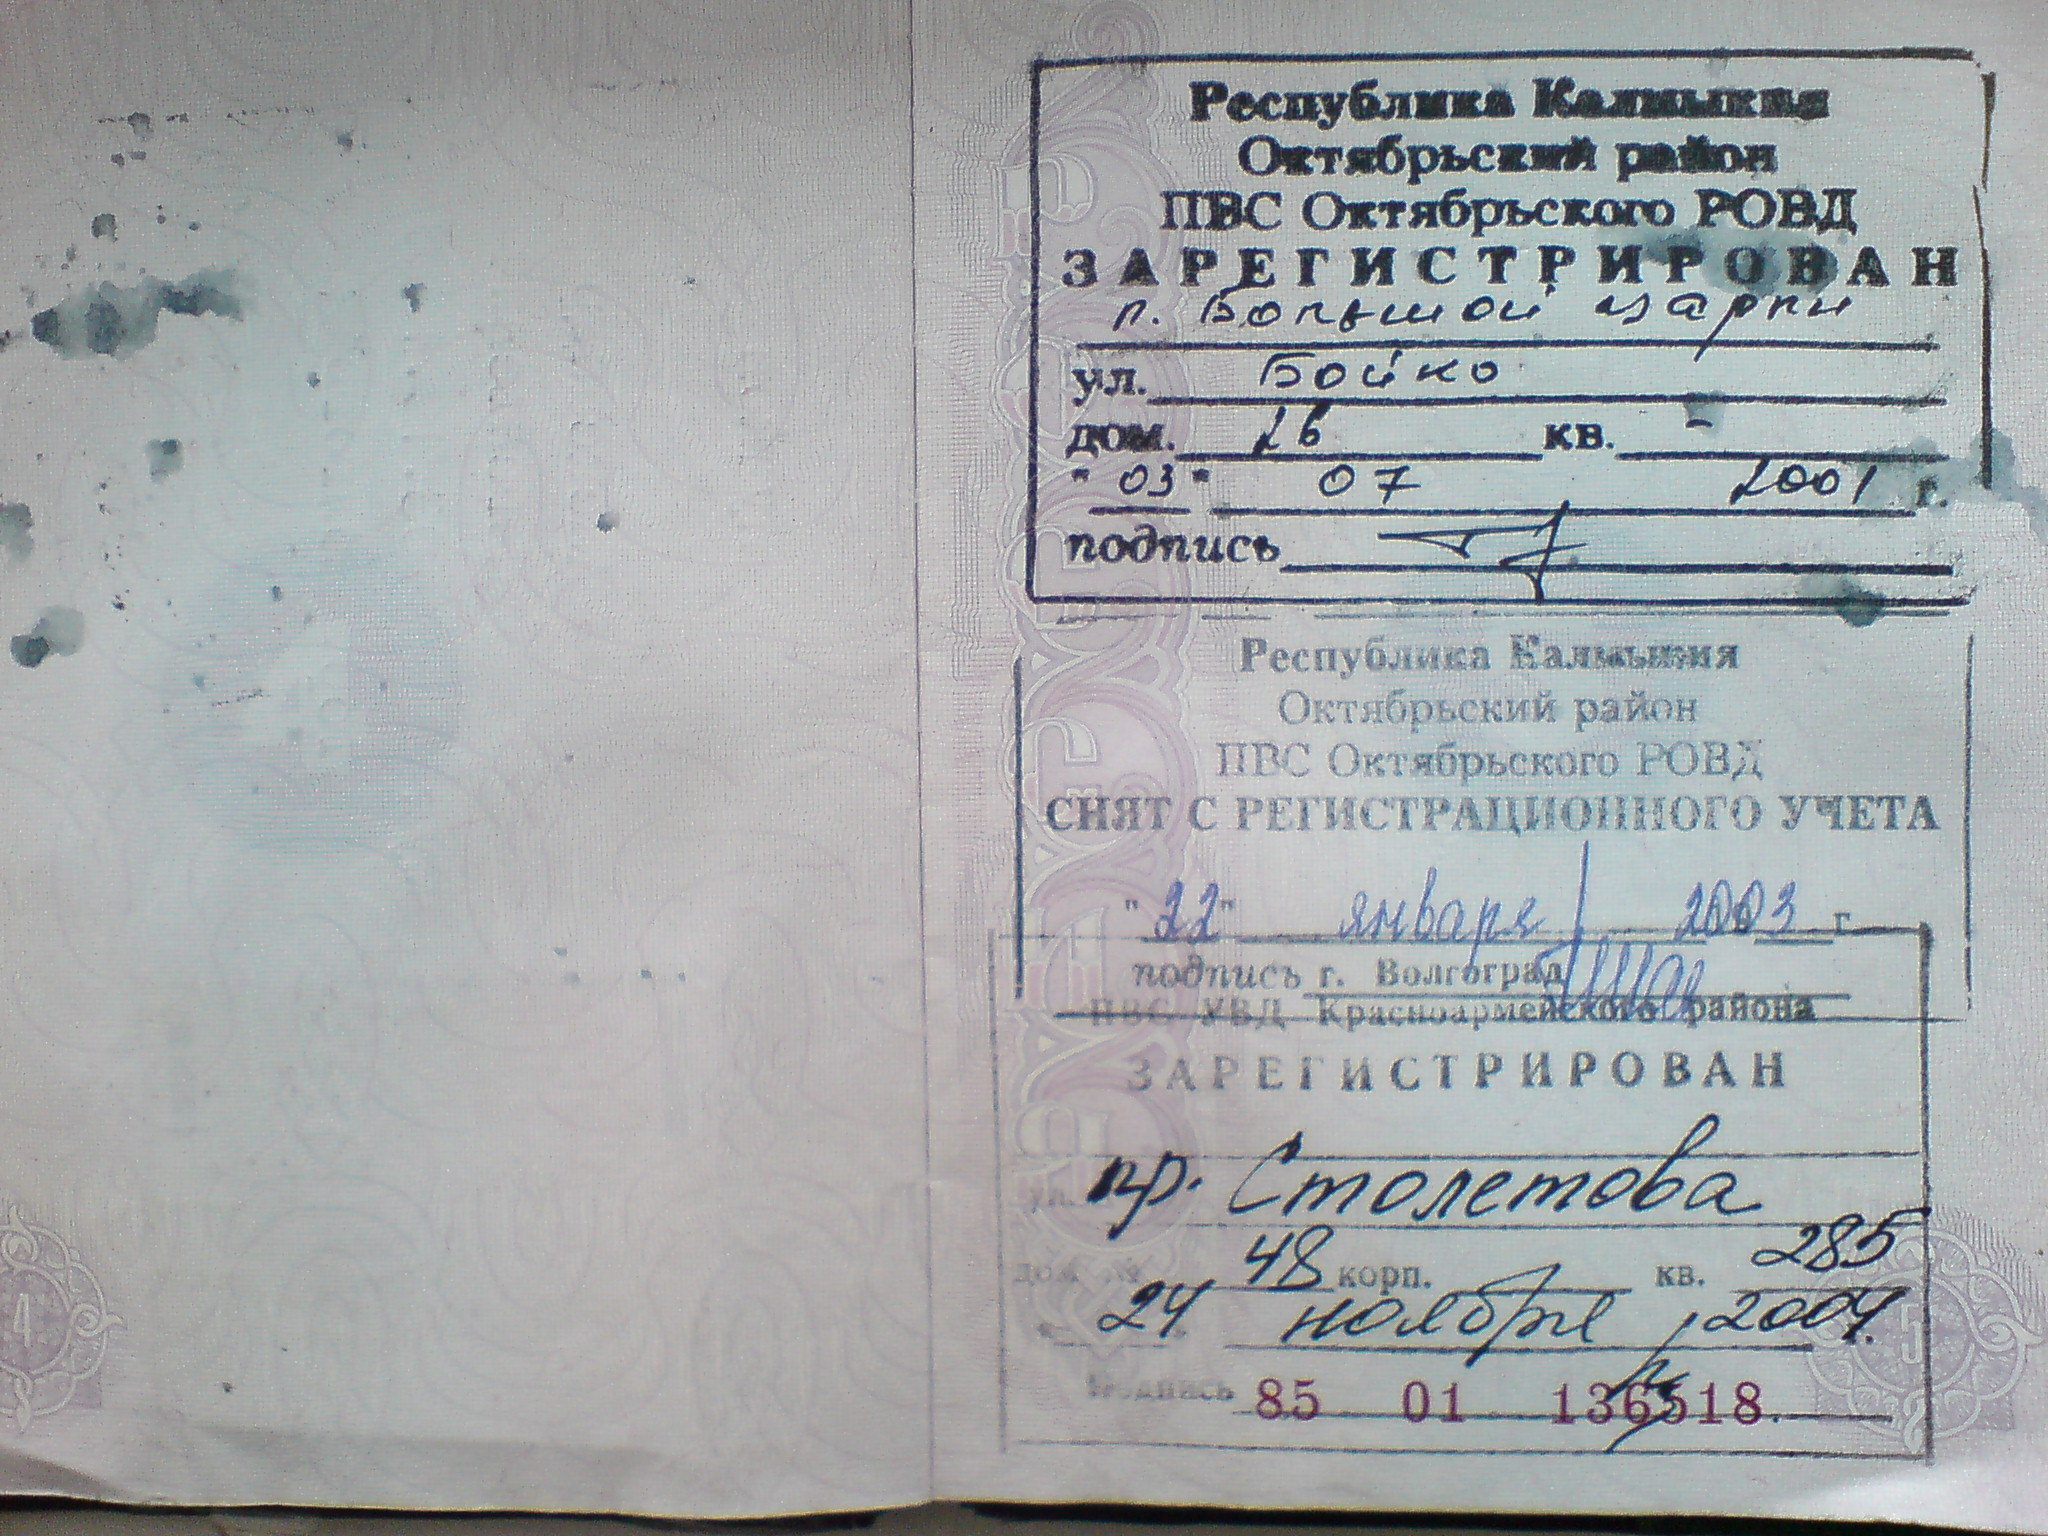 Республика Калмыкия
Октябрьский район
ПВС Октябрьского РОВД
ЗАРЕГИСТРИРОВАН
п. Большой Царын
ул. Бойко
дом. 26 кв. -
"03" 07 2001 г.
подпись
Республика Калмыкия
Октябрьский район
ПВС Октябрьского РОВД
СНЯТ С РЕГИСТРАЦИОННОГО УЧЕТА
"22" января 2003 г
подпись г. Волгоград
ПВС УВД Красноармейского района
ЗАРЕГИСТРИРОВАН
ул. пр. Столетова
дом № 48 корп. кв. 285
24 ноября 2004.
Подпись 85 01 136518
4
5